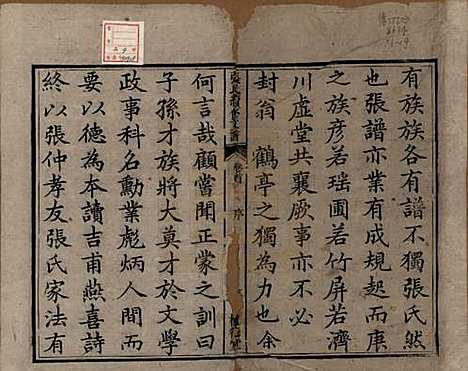 有族族各有譜不獨張氏然
也張譜亦業有成規起而庚
之族彥若瑶圃若竹屏若濟
川虛堂共襄厥事亦不必
封翁鶴亭之獨為力也余
卷首 序
何言哉顧嘗聞正蒙之訓曰
子孫才族將大莫才於文學
政事科名勳業彪炳人間而
要以德為本讀吉甫燕喜詩
終以張仲孝友張氏家法有